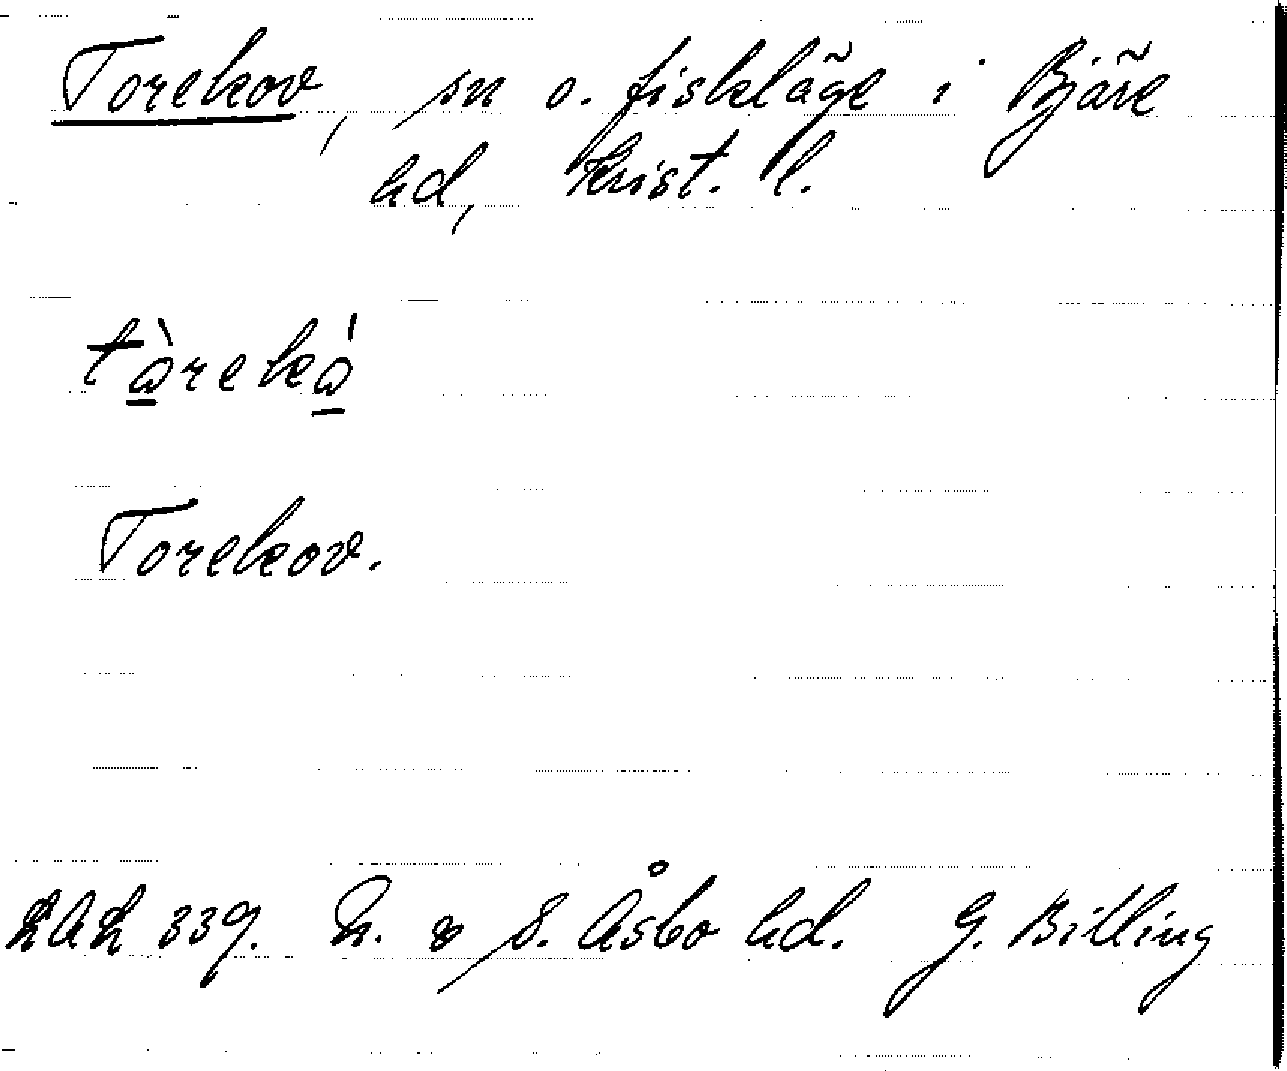 Torekov, sn o. fiskläge i Bjäre
hd, Krist. l.
tàreká
Torekov.
LAL 339. N. o S. Åsbo hd. G. Billing